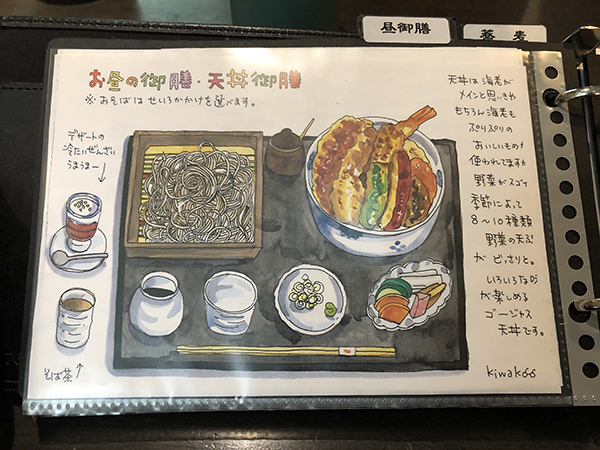 昼御膳
蕎麦
お昼の御膳・天丼御膳
※おそばはせいろかかけを選べます。
デザートの
冷たいぜんざい
うまうまー↓
そば茶↑
天丼は海老が
メインと思いきや
もちろん海老も
ぷりぷりの
おいしいものが
使われてますが
野菜がスゴイ
季節によって
8〜10種類
野菜の天ぷら
がどっさりと。
いろいろな味
が楽しめる
ゴージャス
天丼です。
kiwakoo